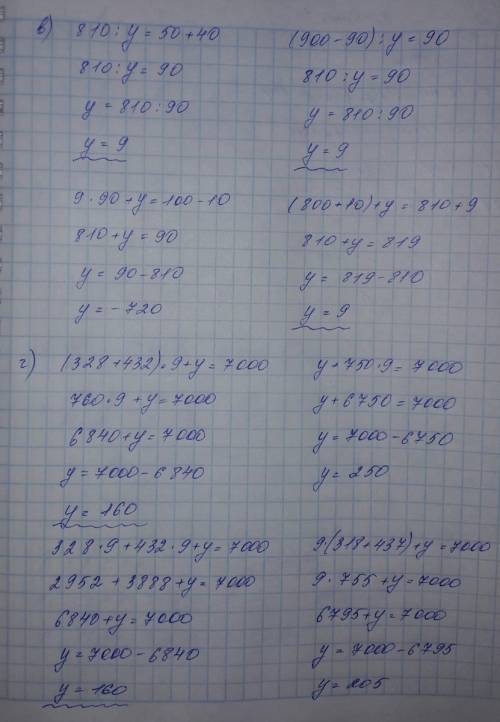 в) 810 : y = 50 + 40
810 : y = 90
y = 810 : 90
y = 9
(900 - 90) : y = 90
810 : y = 90
y = 810 : 90
y = 9
9 · 90 + y = 100 - 10
810 + y = 90
y = 90 - 810
y = - 720
(800 + 10) + y = 810 + 9
810 + y = 819
y = 819 - 810
y = 9
г) (328 + 432) · 9 + y = 7000
760 · 9 + y = 7000
6840 + y = 7000
y = 7000 - 6840
y = 160
y + 750 · 9 = 7000
y + 6750 = 7000
y = 7000 - 6750
y = 250
328 · 9 + 432 · 9 + y = 7000
2952 + 3888 + y = 7000
6840 + y = 7000
y = 7000 - 6840
y = 160
9(318 + 437) + y = 7000
9 · 755 + y = 7000
6795 + y = 7000
y = 7000 - 6795
y = 205